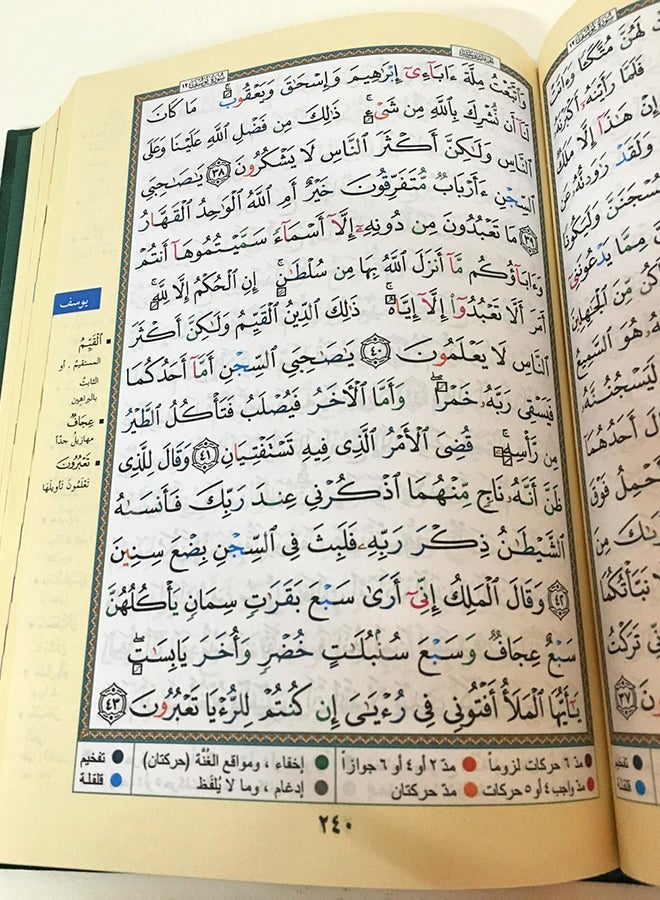 سُورَةُ يُوسُفَ ١٢
وَٱتَّبَعْتُ مِلَّةَ ءَابَآءِىٓ إِبْرَٰهِيمَ وَإِسْحَٰقَ وَيَعْقُوبَ ۚ مَا كَانَ
لَنَآ أَن نُّشْرِكَ بِٱللَّهِ مِن شَىْءٍ ۚ ذَٰلِكَ مِن فَضْلِ ٱللَّهِ عَلَيْنَا وَعَلَى
ٱلنَّاسِ وَلَٰكِنَّ أَكْثَرَ ٱلنَّاسِ لَا يَشْكُرُونَ ٣٨ يَٰصَٰحِبَىِ
ٱلسِّجْنِ ءَأَرْبَابٌ مُّتَفَرِّقُونَ خَيْرٌ أَمِ ٱللَّهُ ٱلْوَٰحِدُ ٱلْقَهَّارُ
٣٩ مَا تَعْبُدُونَ مِن دُونِهِۦٓ إِلَّآ أَسْمَآءً سَمَّيْتُمُوهَآ أَنتُمْ
وَءَابَآؤُكُم مَّآ أَنزَلَ ٱللَّهُ بِهَا مِن سُلْطَٰنٍ ۚ إِنِ ٱلْحُكْمُ إِلَّا لِلَّهِ ۚ
أَمَرَ أَلَّا تَعْبُدُوٓا۟ إِلَّآ إِيَّاهُ ۚ ذَٰلِكَ ٱلدِّينُ ٱلْقَيِّمُ وَلَٰكِنَّ أَكْثَرَ
ٱلنَّاسِ لَا يَعْلَمُونَ ٤٠ يَٰصَٰحِبَىِ ٱلسِّجْنِ أَمَّآ أَحَدُكُمَا
فَيَسْقِى رَبَّهُۥ خَمْرًا ۖ وَأَمَّا ٱلْءَاخَرُ فَيُصْلَبُ فَتَأْكُلُ ٱلطَّيْرُ
مِن رَّأْسِهِۦ ۚ قُضِىَ ٱلْأَمْرُ ٱلَّذِى فِيهِ تَسْتَفْتِيَانِ ٤١ وَقَالَ لِلَّذِى
ظَنَّ أَنَّهُۥ نَاجٍ مِّنْهُمَا ٱذْكُرْنِى عِندَ رَبِّكَ فَأَنسَىٰهُ
ٱلشَّيْطَٰنُ ذِكْرَ رَبِّهِۦ فَلَبِثَ فِى ٱلسِّجْنِ بِضْعَ سِنِينَ
٤٢ وَقَالَ ٱلْمَلِكُ إِنِّىٓ أَرَىٰ سَبْعَ بَقَرَٰتٍ سِمَانٍ يَأْكُلُهُنَّ
سَبْعٌ عِجَافٌ وَسَبْعَ سُنۢبُلَٰتٍ خُضْرٍ وَأُخَرَ يَابِسَٰتٍ ۖ
يَٰٓأَيُّهَا ٱلْمَلَأُ أَفْتُونِى فِى رُءْيَٰىَ إِن كُنتُمْ لِلرُّءْيَا تَعْبُرُونَ ٤٣
يوسف
ٱلْقَيِّمُ
المستقيم . أو
الثابتُ
بالبراهين
عِجَافٌ
مهازيلُ جدّاً
تَعْبُرُونَ
تَعْلَمُونَ تأويلَها
مدّ ٦ حركات لزوماً مدّ ٢ أو ٤ أو ٦ جوازاً إخفاء ، ومواقع الغُنَّة (حركتان) تفخيم
مدّ واجب ٤ أو ٥ حركات مدّ حركتان إدغام ، وما لا يُلفَظ قلقلة
٢٤٠
لَهُنَّ مُتَّكَـًٔا وَءَاتَتْ
فَلَمَّا رَأَيْنَهُۥٓ أَكْبَرْنَهُۥ
إِنْ هَٰذَآ إِلَّا مَلَكٌ
وَلَقَدْ رَٰوَدتُّهُۥ عَن
لَيُسْجَنَنَّ وَلَيَكُونًا
مِمَّا يَدْعُونَنِىٓ
أَكُن مِّنَ ٱلْجَٰهِلِينَ
هُوَ ٱلسَّمِيعُ
لَيَسْجُنُنَّهُۥ
قَالَ أَحَدُهُمَآ
أَحْمِلُ فَوْقَ
نَرَىٰكَ مِنَ
نَبَّأْتُكُمَا
إِنِّى تَرَكْتُ
٣٧
تفخيم
قلقلة